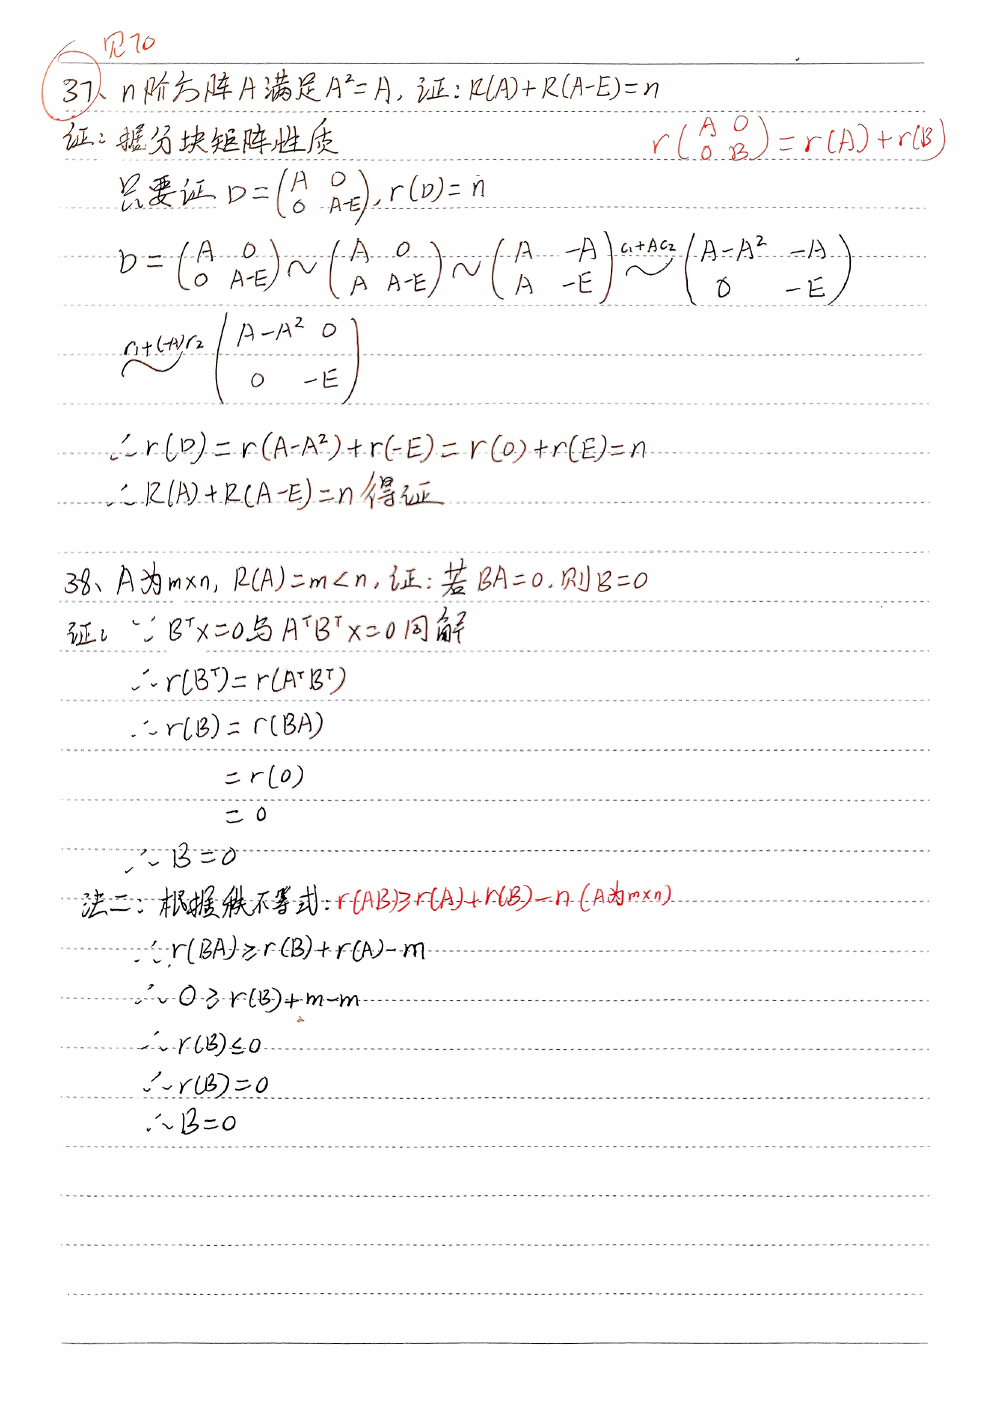 见70
37、n阶方阵A满足A²=A, 证: R(A)+R(A-E)=n
证: 据分块矩阵性质 r(A 0 0 B)=r(A)+r(B)
只要证 D=(A 0 0 A-E), r(D)=n
D=(A 0 0 A-E)~(A 0 A A-E)~(A -A A -E) c₁+Ac₂ ~ (A-A² -A 0 -E)
r₁+(-A)r₂ ~ (A-A² 0 0 -E)
∴r(D)=r(A-A²)+r(-E)=r(0)+r(E)=n
∴R(A)+R(A-E)=n 得证
38、A为m×n, R(A)=m<n, 证: 若BA=0, 则B=0
证: ∵BᵀX=0与AᵀBᵀX=0同解
∴r(Bᵀ)=r(AᵀBᵀ)
∴r(B)=r(BA)
=r(0)
=0
∴B=0
法二: 根据秩不等式: r(AB)≥r(A)+r(B)-n (A为m×n)
∴r(BA)≥r(B)+r(A)-m
∴0≥r(B)+m-m
∴r(B)≤0
∴r(B)=0
∴B=0